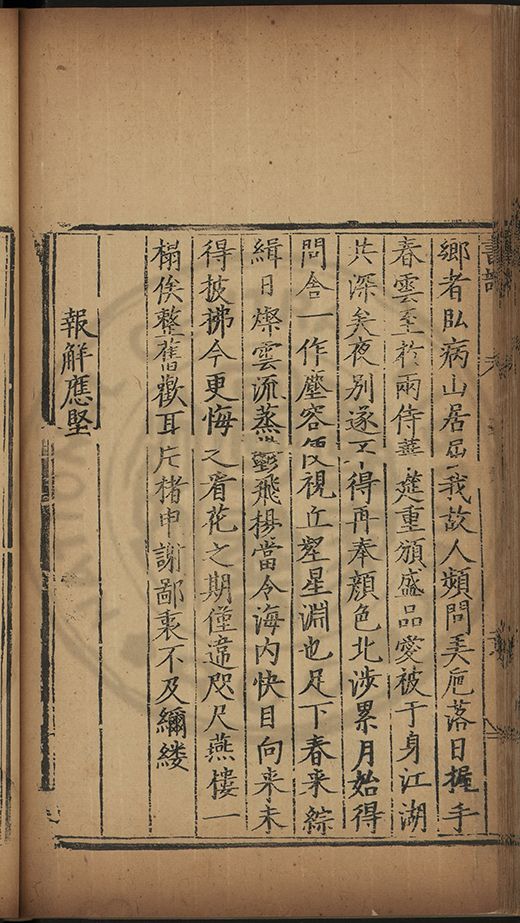 鄉者臥病山居屈我故人頻問美疤落日握手
春雲至於兩侍華筵重頒盛品愛被于身江湖
共深矣夜別遂不得再奉顏色北涉累月始得
問舍一作塵容便視丘壑星淵也足下春來綜
緝日燦雲流蒸鬱飛揚當令海內快目向來未
得披拂今更悔之看花之期僅違咫尺燕樓一
榻俟整舊歡耳片楮申謝鄙衷不及纚縷
報解應堅
書部